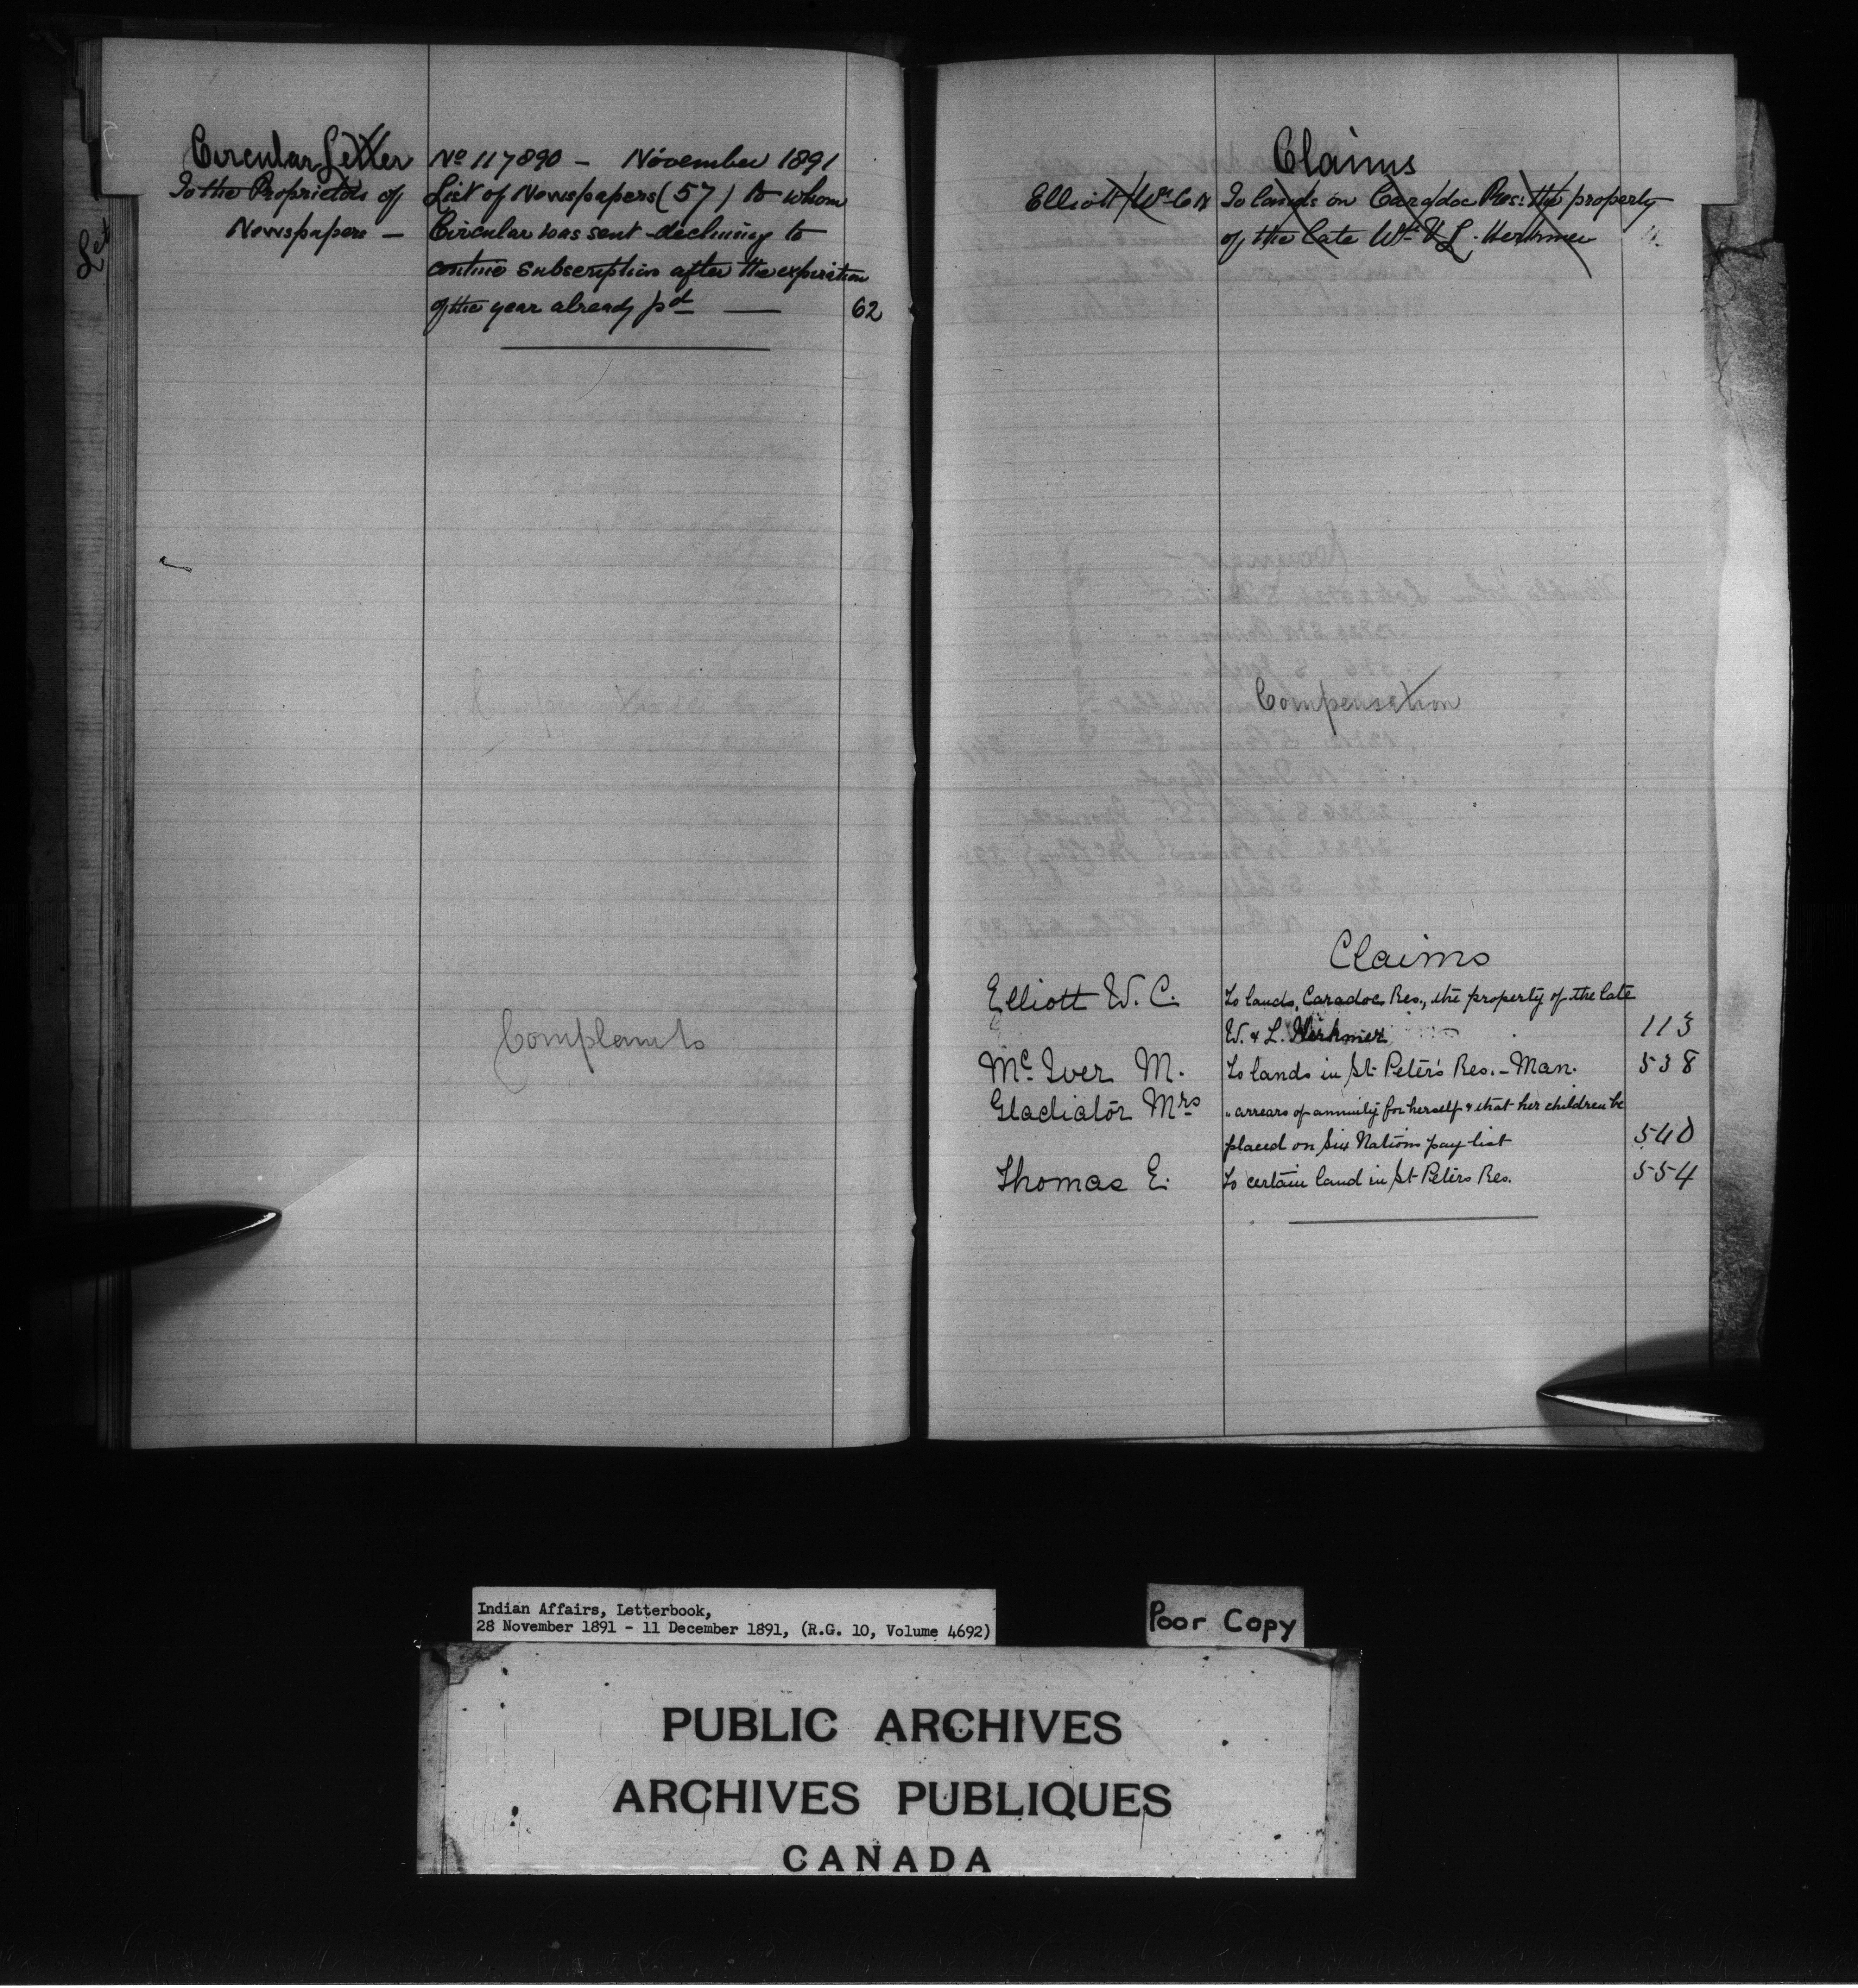 Let
Circular Letter
To the Proprietors of
Newspapers —
No 117890 — November 1891
List of Newspapers (57) to whom
Circular was sent declining to
contine subscription after the expiration
of the year already pd — 62
Complaints
Claims
Elliott Wm C To lands on Caradoc Res: the property
of the late Wm & L. Herkmer
Compensation
Claims
Elliott W. C. To lands, Caradoc Res., the property of the late
W. & L. 113
McIver M. To lands in St Peter's Res. - Man. 538
Gladiator Mrs " arrears of annuity for herself & that her children be
placed on Six Nations pay-list 540
Thomas E. To certain land in St Peters Res. 554
Indian Affairs, Letterbook,
28 November 1891 - 11 December 1891, (R.G. 10, Volume 4692)
Poor Copy
PUBLIC ARCHIVES
ARCHIVES PUBLIQUES
CANADA